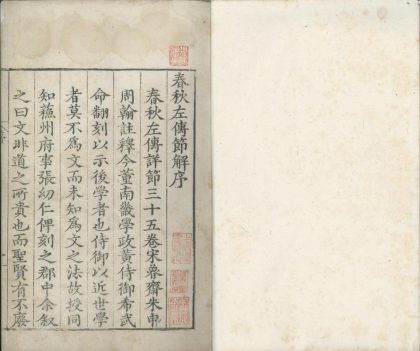 春秋左傳節解序
春秋左傳詳節三十五卷宋魯齋朱申
周翰註釋今董南畿學政黃侍御希武
命翻刻以示後學者也侍御以近世學
者莫不為文而未知為文之法故授同
知蘓州府事張幼仁俾刻之郡中余叙
之曰文非道之所貴也而聖賢有不廢